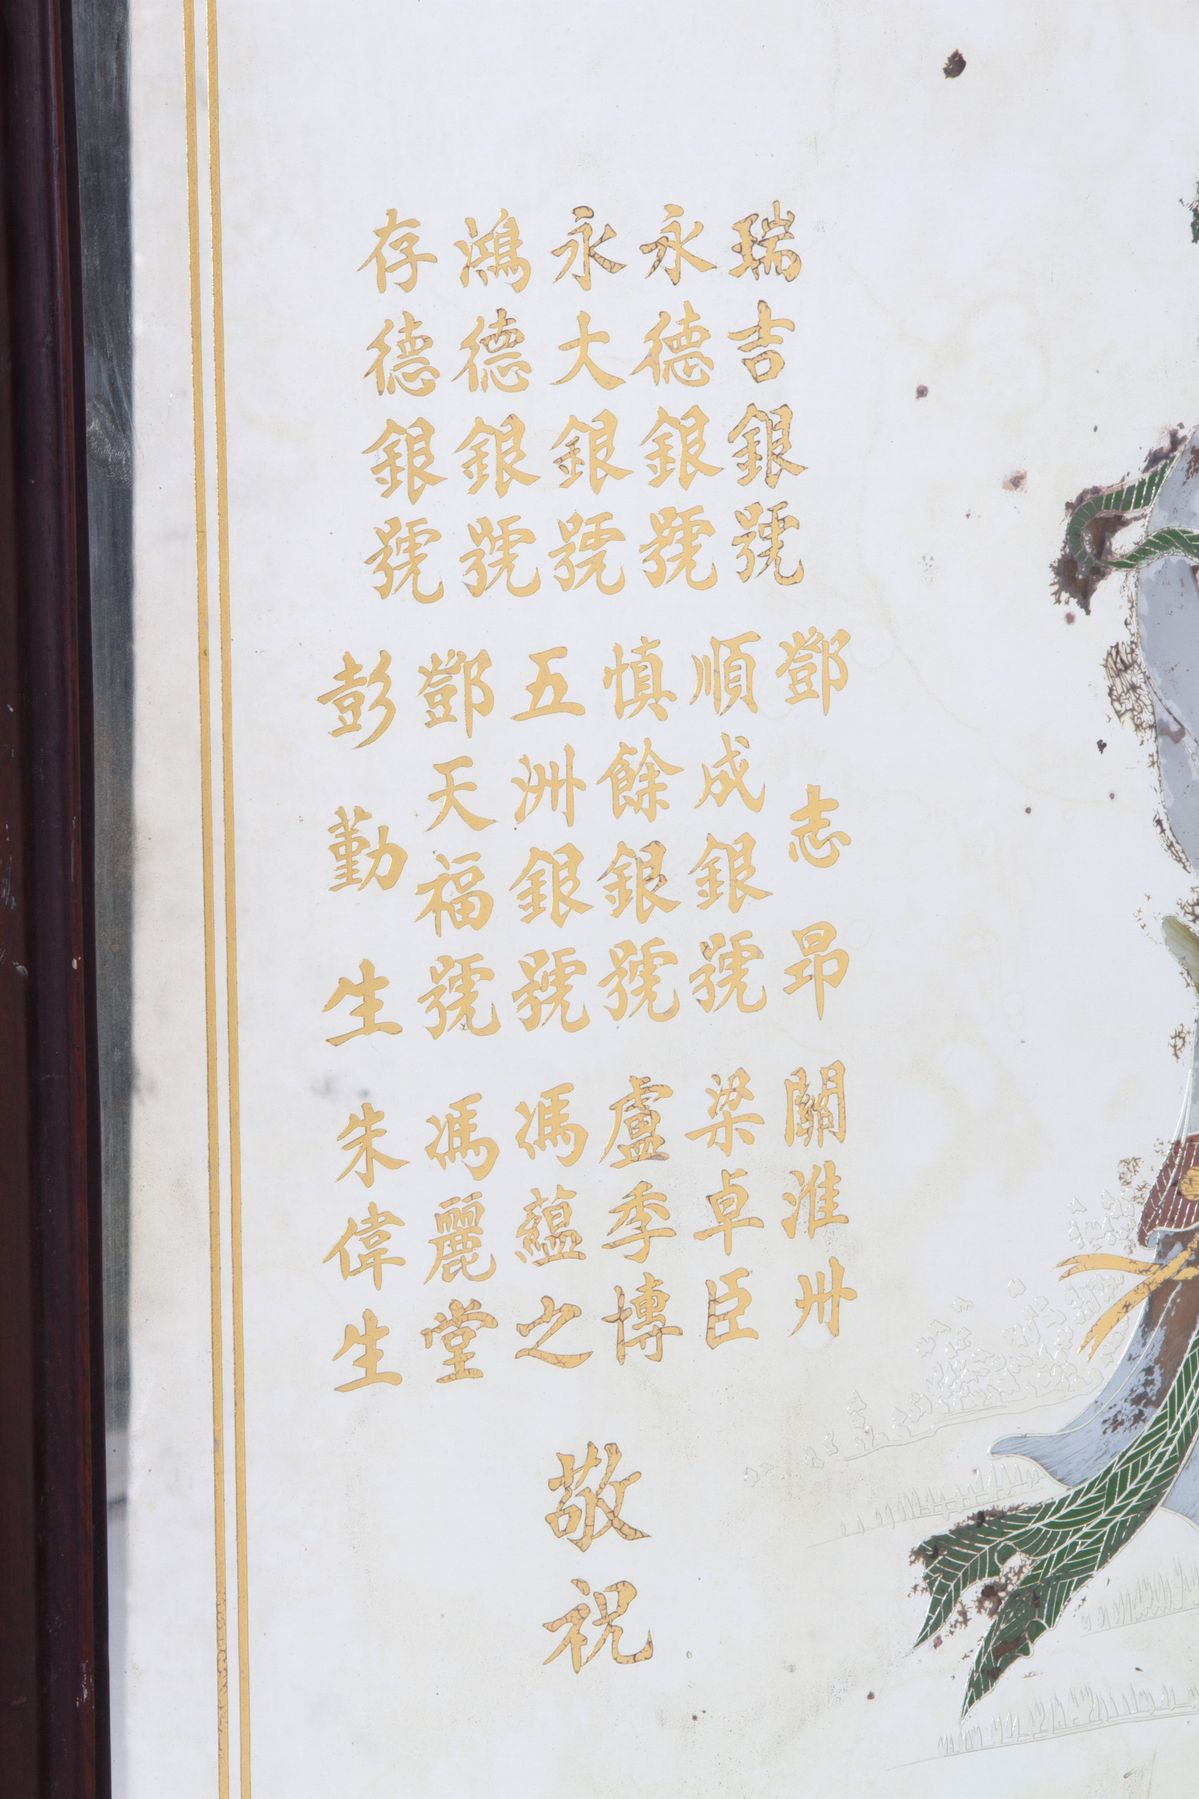 瑞吉銀號
永德銀號
永大銀號
鴻德銀號
存德銀號
鄧志昂
順成銀號
慎餘銀號
五洲銀號
鄧天福號
彭勤生
關淮州
梁卓臣
盧季博
馮蘊之
馮麗堂
朱偉生
敬祝